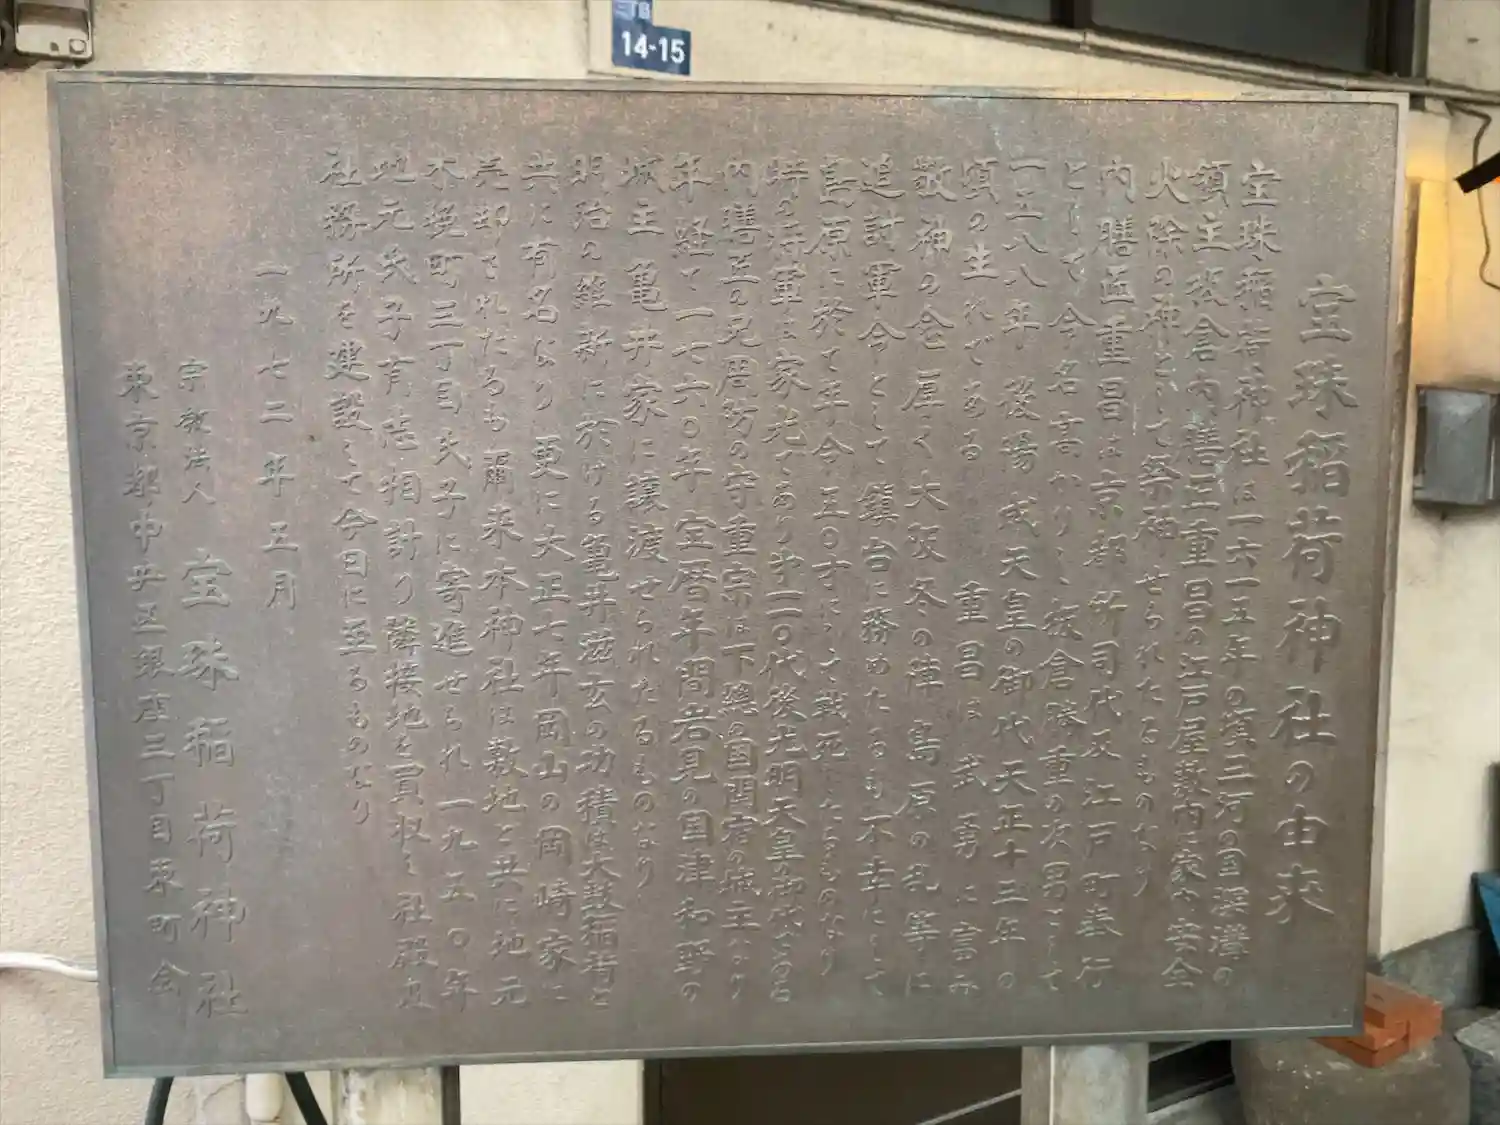 三丁目
14-15
宝珠稲荷神社の由来
宝珠稲荷神社は一六一五年の頃三河の国深溝の
領主板倉内膳正重昌の江戸屋敷内に家内安全
火除の神として祭神せられたるものなり
内膳正重昌は京都所司代及江戸町奉行
として今名高かりし板倉勝重の次男として
一五八八年 後陽成天皇の御代天正十三年の
頃の生れである 重昌は武勇に富み
敬神の念厚く大阪冬の陣島原の乱等に
追討軍令として鎮台に務めたるも不幸にして
島原に於て年令五〇才にして戦死したるものなり
時の将軍は家光であり第一一〇代後光明天皇御代
内膳正の兄周防の守重宗は下總の国関宿の城主なり
年経て一七六〇年 宝暦年間岩見の国津和野の
城主亀井家に譲渡せられたるものなり
明治の維新に於ける亀井滋玄の功積は太鼓稲荷と
共に有名なり更に大正七年岡山の岡崎家に
売却されたるも爾来本神社は敷地と共に地元
木挽町三丁目氏子に寄進せられ一九五〇年
地元氏子有志相計り隣接地を買収し社殿並
社務所を建設して今日に至るものなり
一九七二年五月
宗教法人 宝珠稲荷神社
東京都中央区銀座三丁目東町会